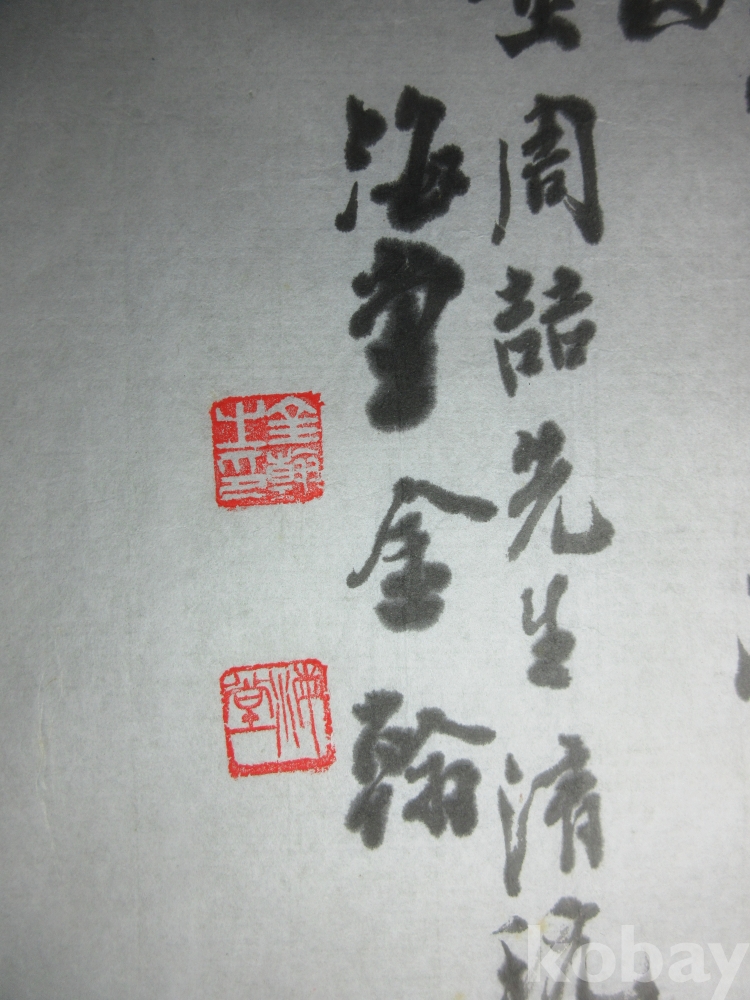 周喆先生清
海堂金翰
金翰之印
海堂
kobay